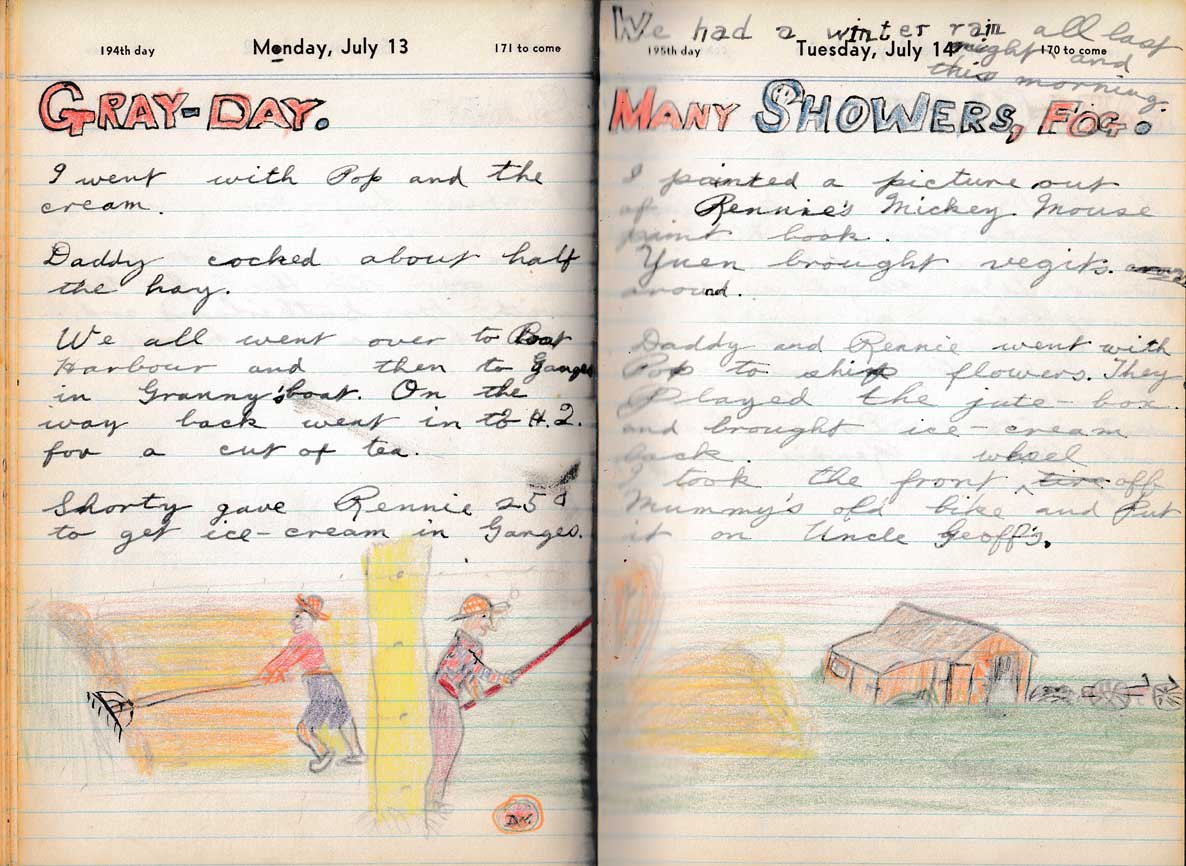 194th day Monday, July 13 171 to come
GRAY-DAY.
I went with Pop and the
cream.
Daddy cocked about half
the hay.
We all went over to Boat
Harbour and then to Ganges
in Granny's boat. On the
way back went in to H.2.
for a cut of tea.
Shorty gave Rennie 25¢
to get ice-cream in Ganges.
D.W.
We had a winter rain all last
night and
this morning.
195th day Tuesday, July 14 170 to come
MANY SHOWERS, FOG.
I painted a picture out
of Rennie's Mickey Mouse
paint book.
Yuen brought vegits.
around.
Daddy and Rennie went with
Pop to ship flowers. They
Played the jute-box.
and brought ice-cream
back.
wheel
I took the front ^ tire off
Mummy's old bike and Put
it on Uncle Geoff's.